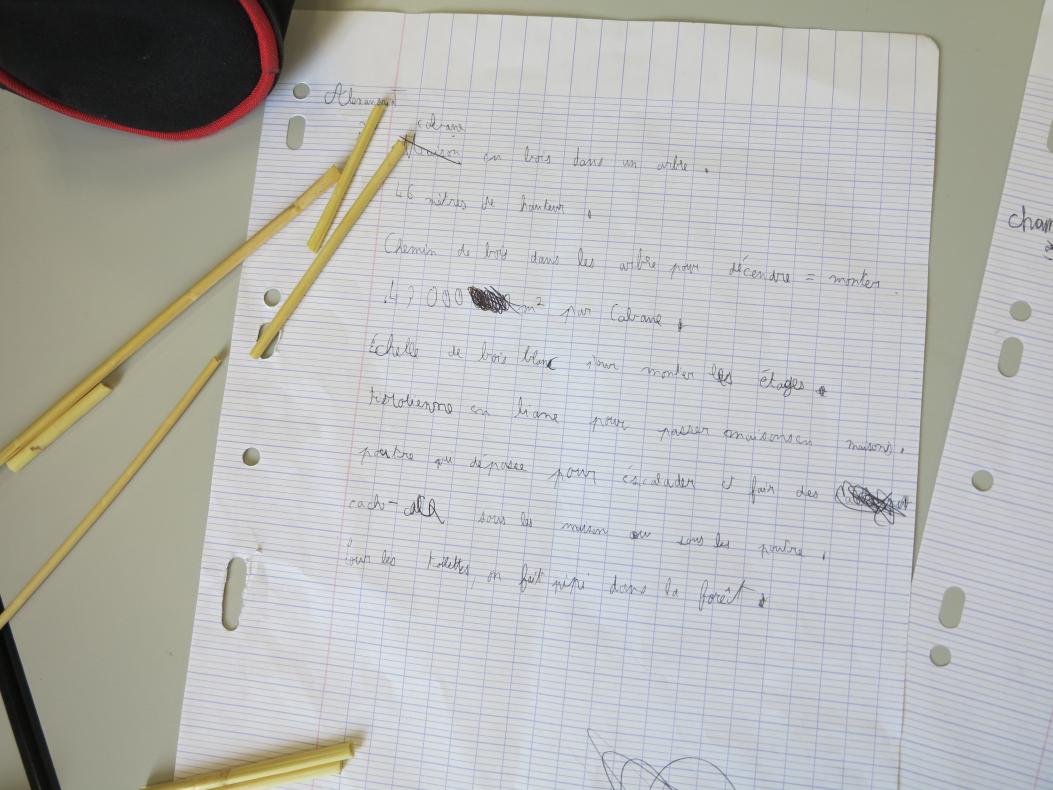 Alexandre
cabane
Maison en bois dans un arbre.
46 mètres de hauteur.
Chemin de bois dans les arbre pour décendre = monter.
47 000 m² par Cabane.
Echelle de bois blanc pour monter les étages.
tirolienne en liane pour passer maisons en maisons.
poutre qui dépasse pour éscalader et fair des
cach- sous les maison ou sous les poutre.
Pour les toilettes on fait pipi dans la forêt.
cham